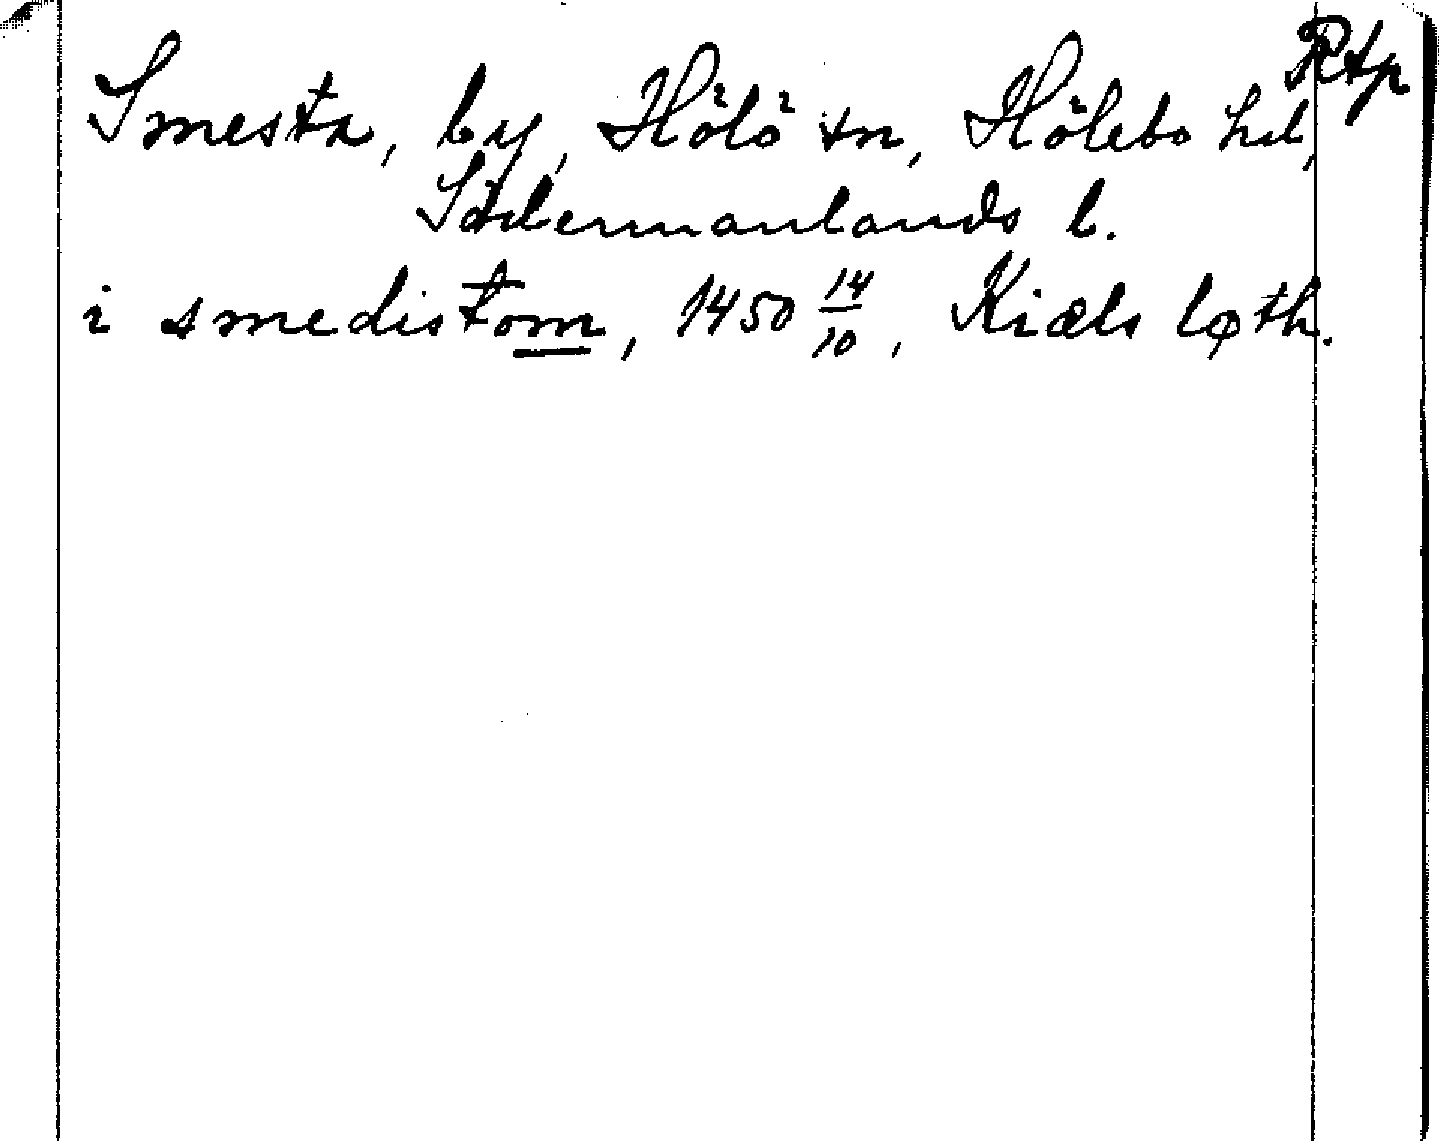 Rtp
Smesta, by, Hölö sn, Hölebo hd,
Södermanlands l.
i smedistom, 1450 14/10, Kiæls løth.